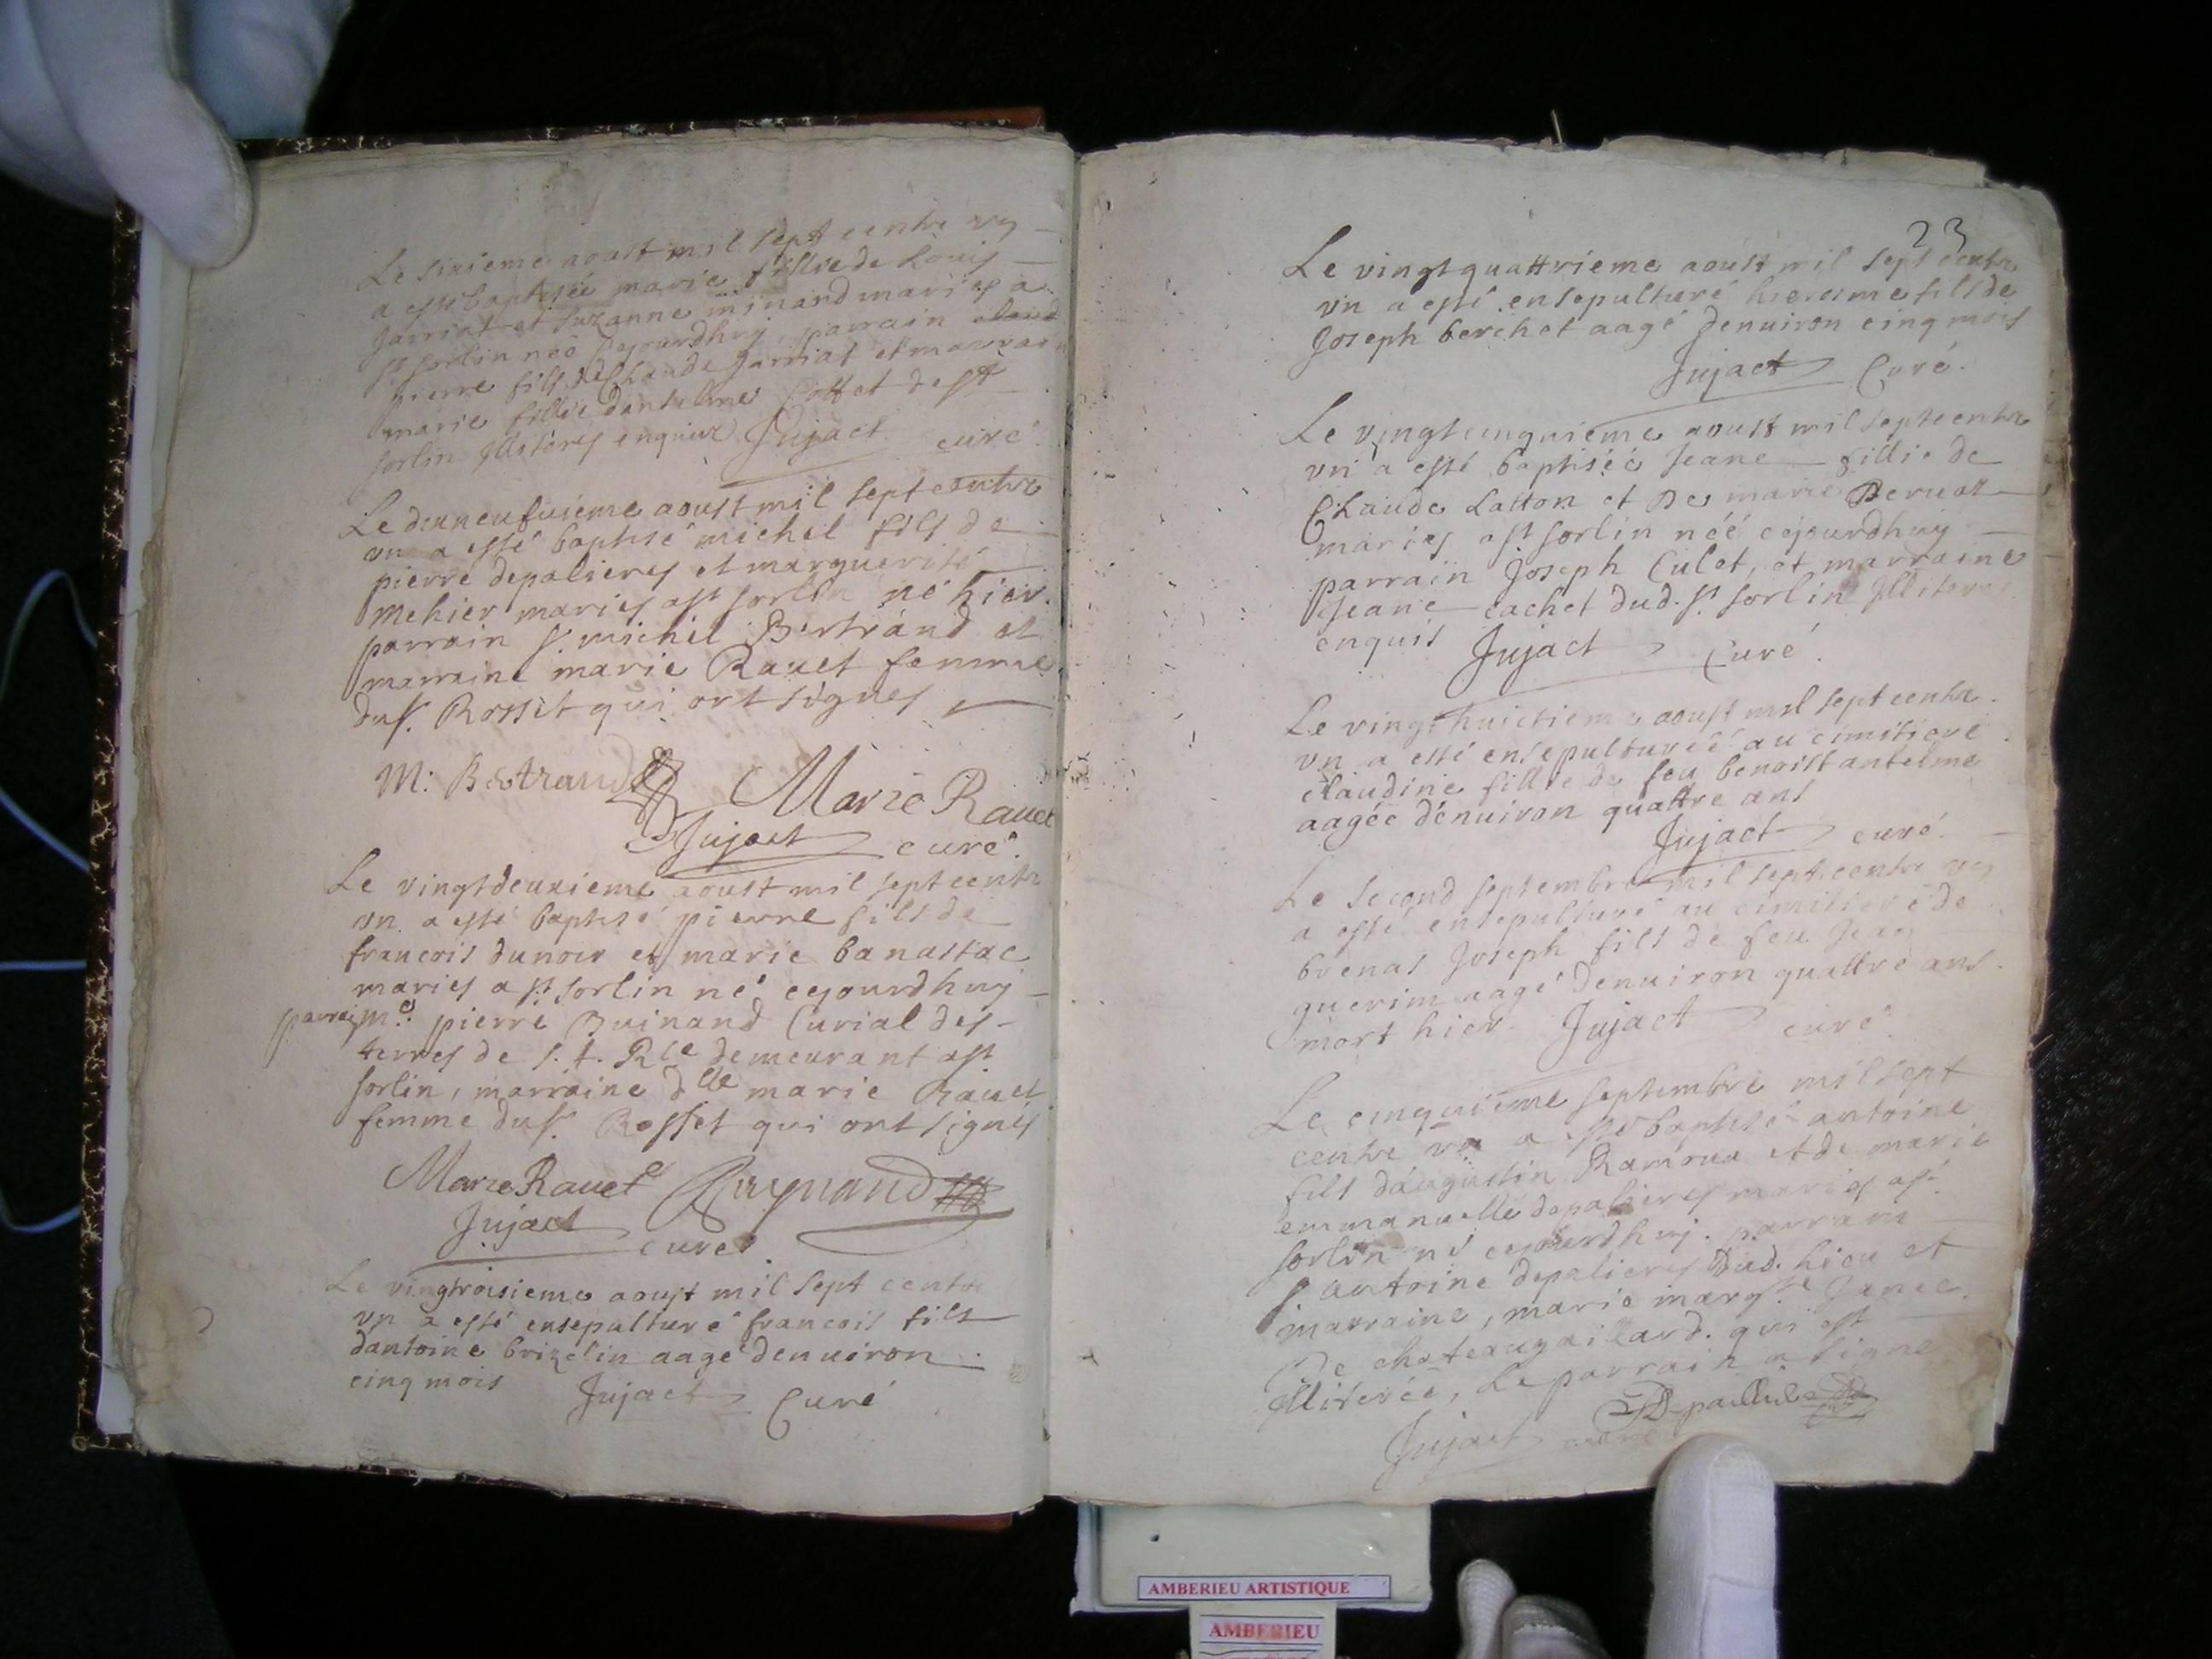 Le sixieme aoust mil sept centz vn
a esté baptisée marie fillie de Louis
Jarriat et Suzanne minand mariés a
st sorlin née cejourdhuy parrain
pierre fils de Claude Jarriat et marrai
marie fillie dantelme Cottet de st
sorlin Illiterés enquis Jujact curé
Le dixneufuieme aoust mil sept centz
vn a esté baptisé michel fils de
pierre depalieres et marguerite
mehier mariés a st sorlin né hier
parrain sr michel Bertrand et
marraine marie Rauet femme
du sr. Rosset qui ont signés
M: Bertrand Marie Rauet
Jujact curé
Le vingtdeuxieme aoust mil sept centz
vn a esté baptisé pierre fils de
francois dunoir et marie banastac
mariés a st sorlin né cejourdhuy
parrain me: pierre Buinand Curial des
terres de s. t. Rle demeurant a st
sorlin, marraine dlle marie Rauet
femme du sr. Rosset qui ont signés
Marie Rauet Buynand
Jujact curé
Le vingtroisieme aoust mil sept centz
vn a esté ensepulturé francois fils
dantoine brizelin aagé denuiron
cinq mois Jujact Curé
23
Le vingtquattrieme aoust mil sept centz
vn a esté ensepulturé hierosme fils de
Joseph berchet aagé denuiron cinq mois
Jujact Curé.
Le vingtcinquieme aoust mil sept centz
vn a esté baptisée Jeane fillie de
Claude Laiton et De marie Beruat
mariés a st sorlin néé cejourdhuy
parrain Joseph Culet, et marraine
Jeane cachet dud. st sorlin Illiterés
enquis Jujact Curé.
Le vingthuictieme aoust mil sept centz
vn a esté ensepulturéé au cimitiere
claudine fillie de feu benoist antelme
aagée dénuiron quattre ans
Jujact curé.
Le second septembre mil sept centz vn
a esté ensepulturé au cimitiere de
brenas Joseph fils de feu Jean
guerim aagé denuiron quattre ans
mort hier Jujact curé
Le cinquieme septembre mil sept
centz vn a esté baptisé antoine
fils daugustin Ramoux et de marie
emmanuelle depalieres mariés a st
sorlin né cejourdhuy. parrain
sr antoine depalieres Dud. lieu et
marraine, marie margte Janec
de chateaugaillard. qui est
Illiterée, Le parrain a signé
Depalliere
Jujact curé
AMBERIEU ARTISTIQUE
AMBERIEU